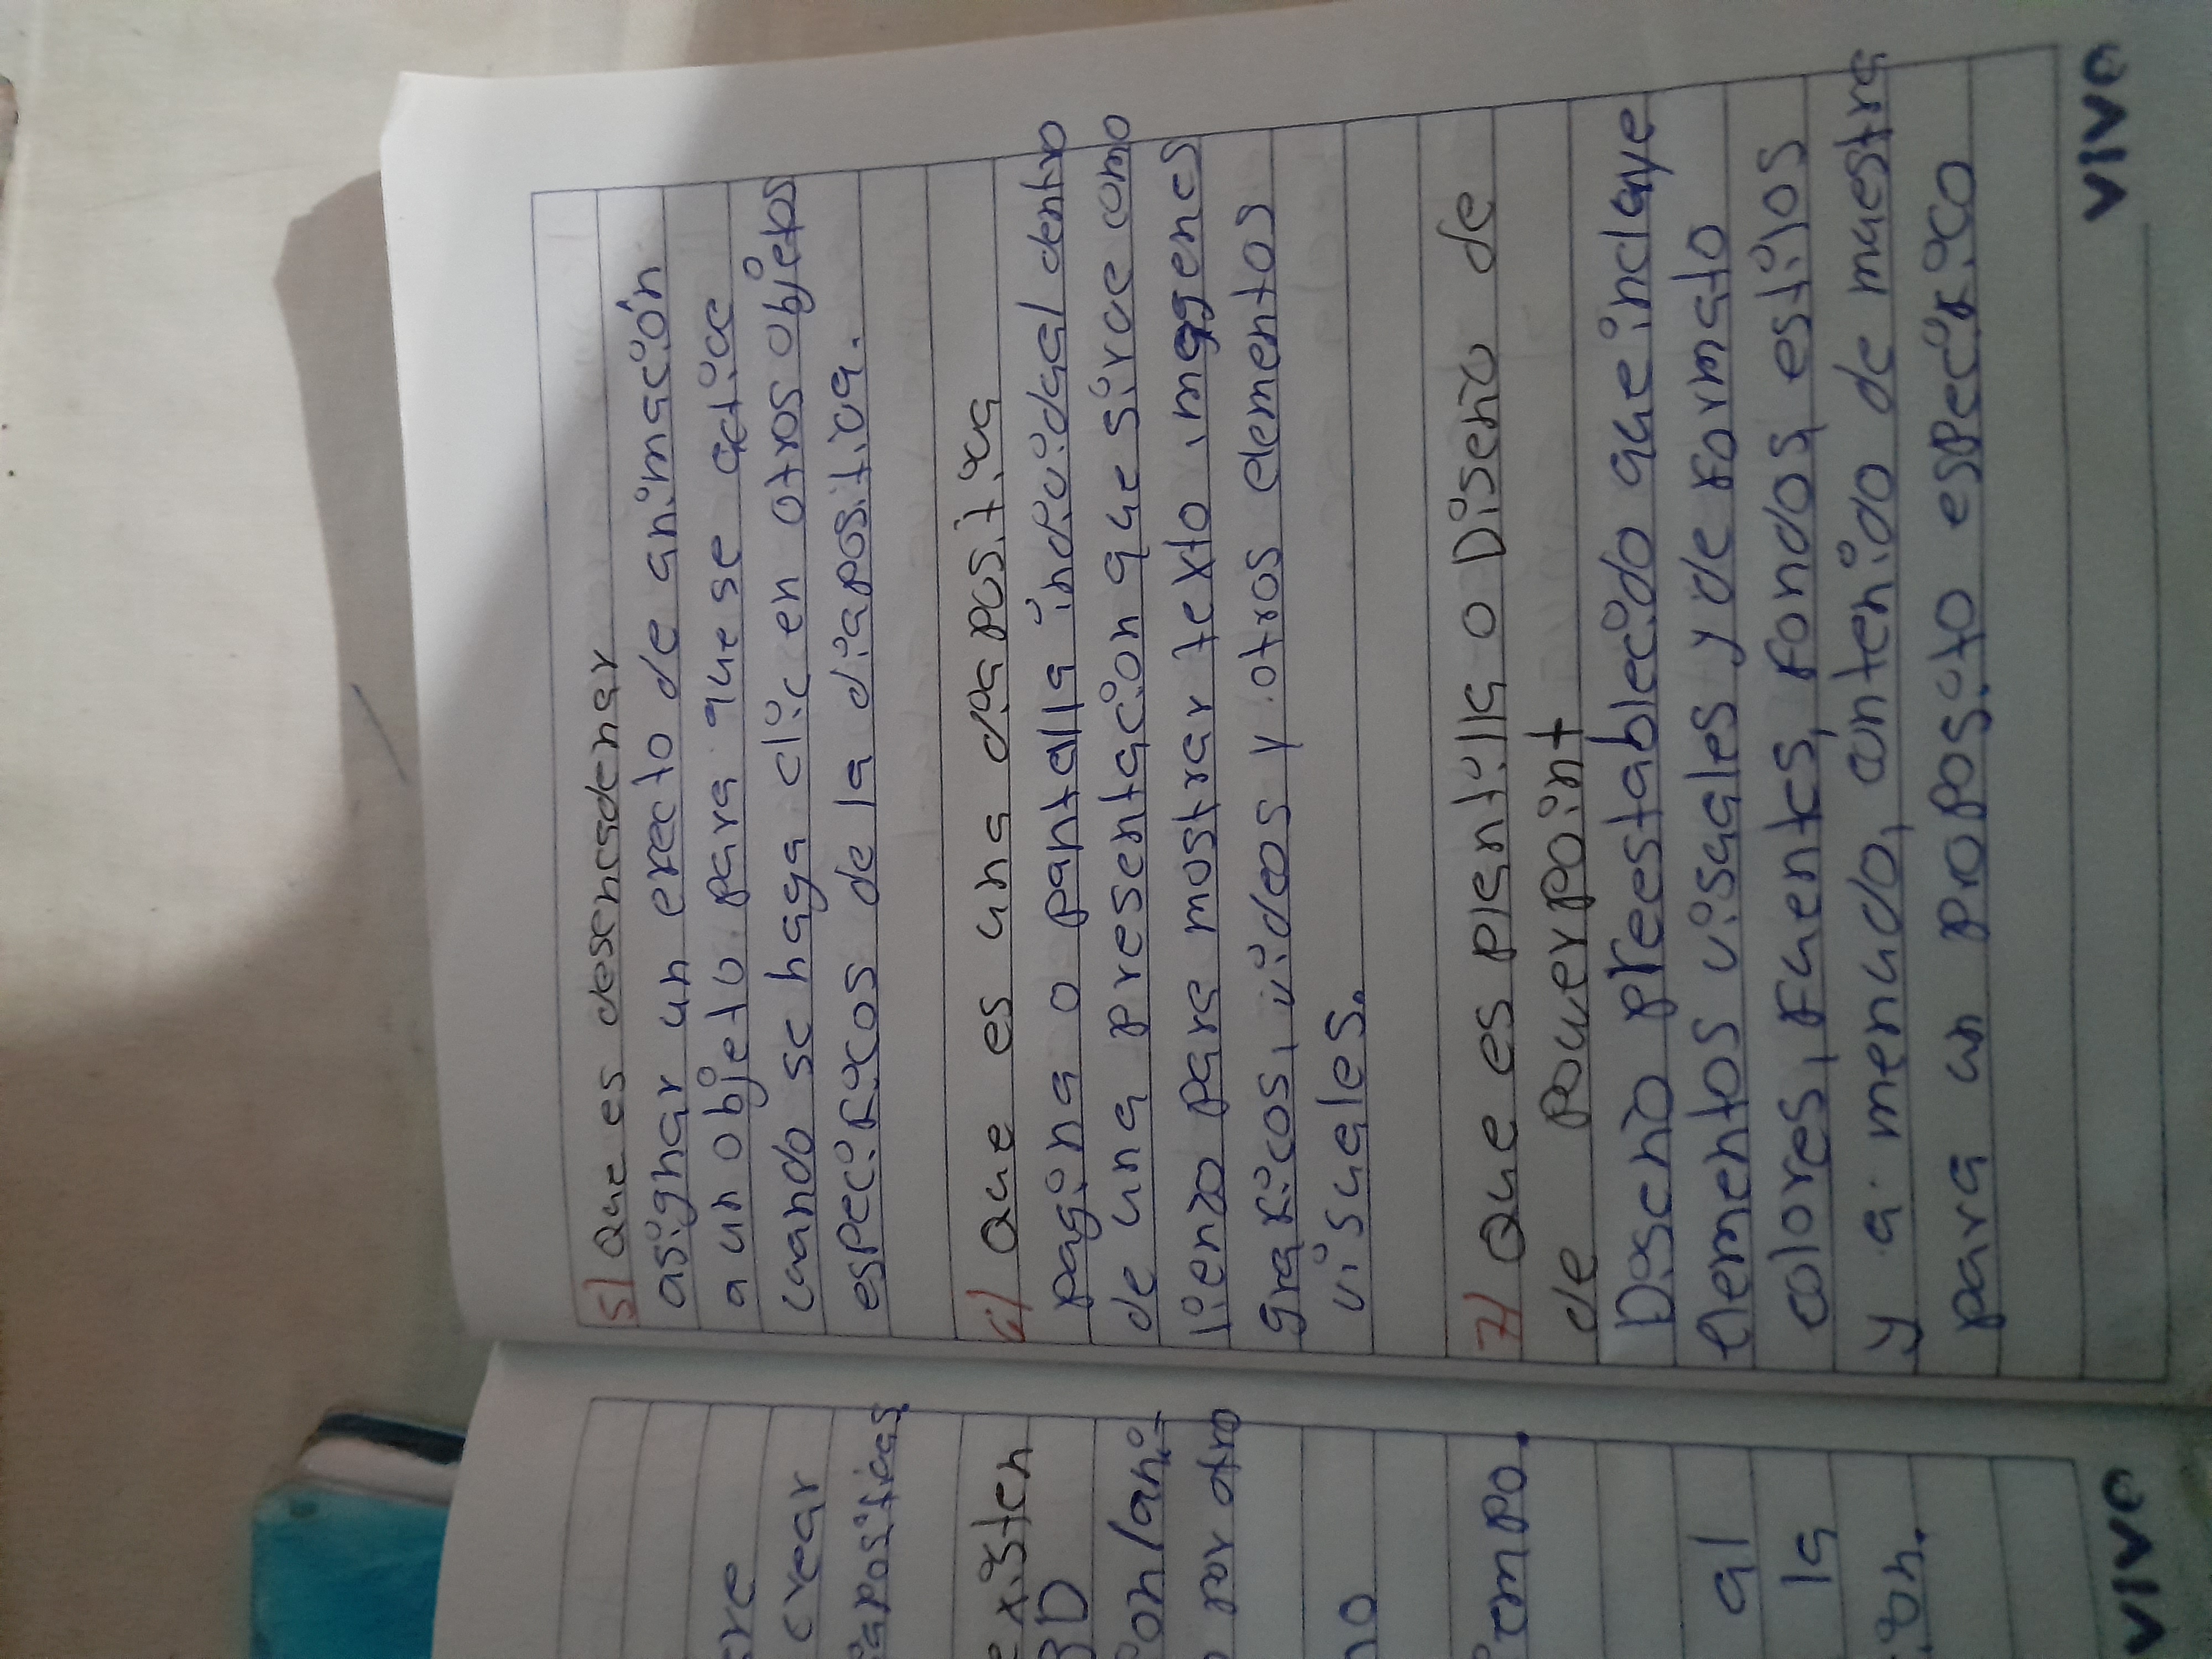 5) Que es desencadenar
asignar un efecto de animación
a un objeto para que se active
cuando se haga clic en otros objetos
específicos de la diapositiva.
6) Que es una diapositiva
pagina o pantalla individual dentro
de una presentacion que sirve como
lienzo para mostrar texto imagenes
graficos, videos y otros elementos
visuales.
7) Que es plantilla o Diseño de
de powerpoint
Diseño preestablecido que incluye
elementos visuales y de formato
colores, fuentes, fondos, estilos
y a menudo, contenido de muestra
para un proposito especifico
VIVO
crear
diapositivas
existen
3D
por otro
tiempo.
al
la
VIVO